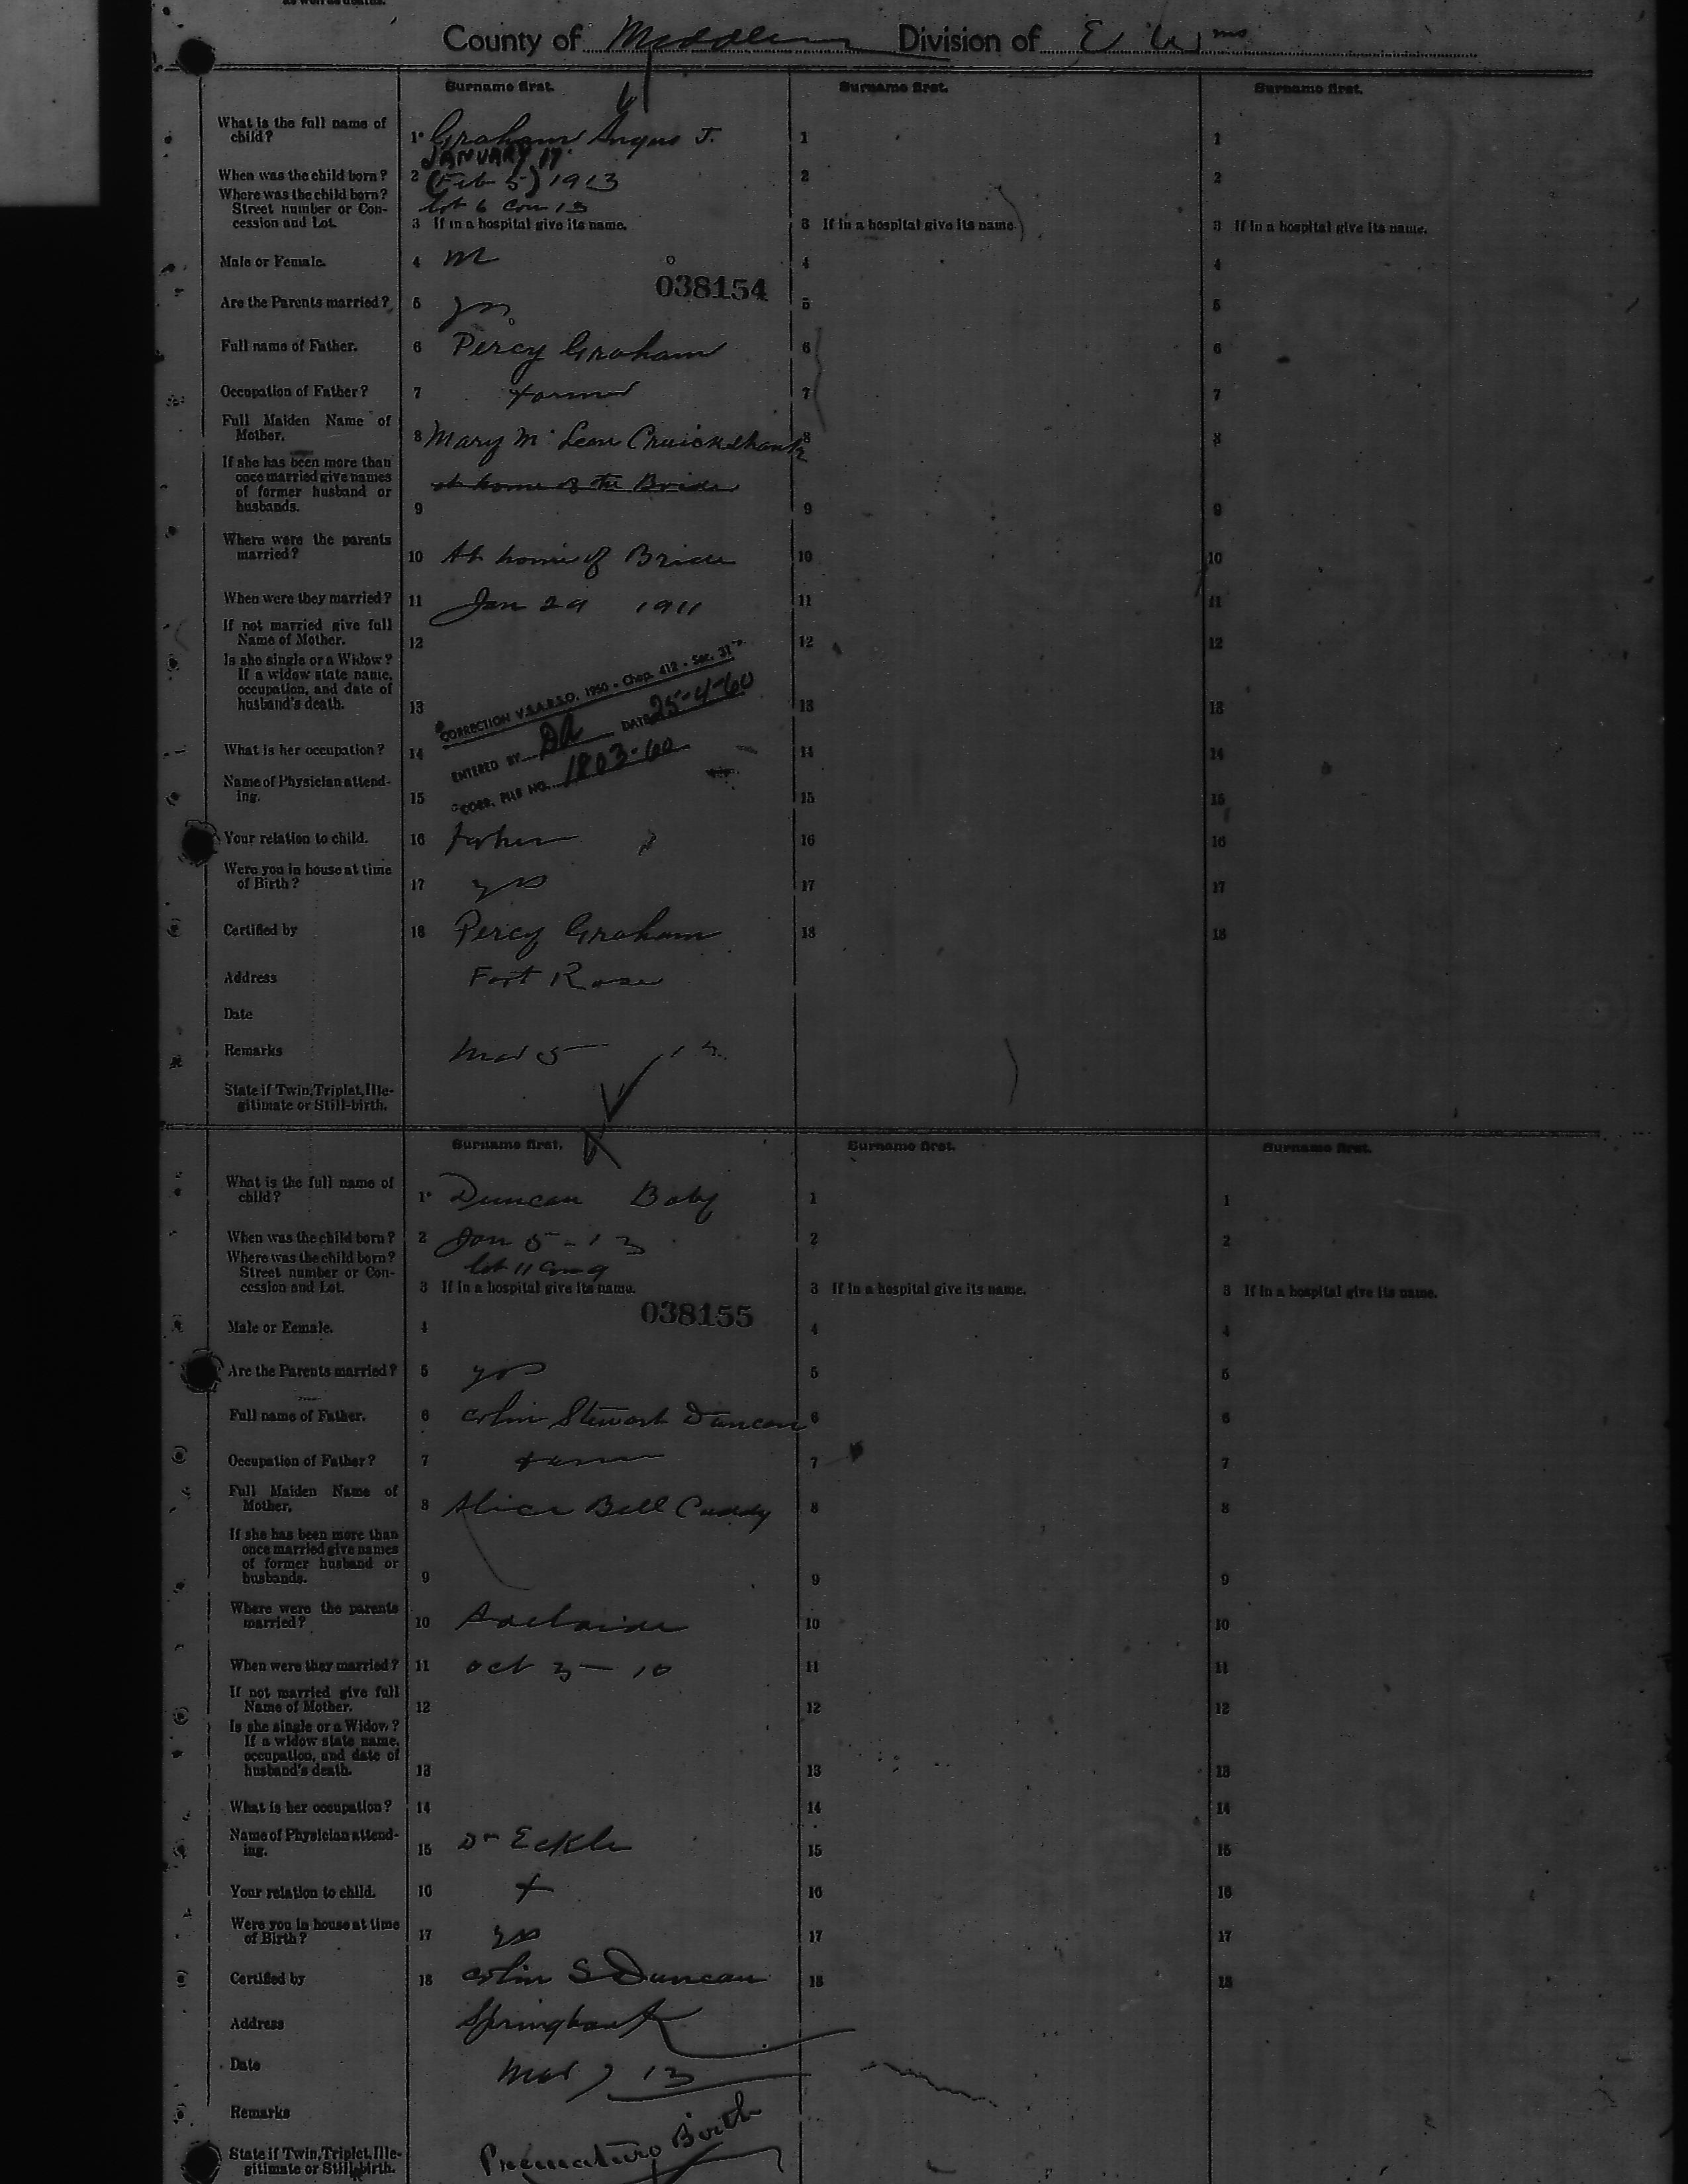 as well as deaths.
County of Middlesex Division of E Wms
Surname first.
Surname first.
Surname first.
What is the full name of
child?
1 Graham Angus J.
1
1
JANUARY 17.
When was the child born?
2 (Feb 5) 1913
2
2
Where was the child born?
Street number or Con-
cession and Lot.
lot 6 Con 13
3 If in a hospital give its name.
3 If in a hospital give its name.
3 If in a hospital give its name.
Male or Female.
4 M
4
4
038154
Are the Parents married?
5 yes
5
5
Full name of Father.
6 Percy Graham
6
6
Occupation of Father?
7 farmer
7
7
Full Maiden Name of
Mother.
8 Mary Mc Lean Cruickshank
8
8
If she has been more than
once married give names
of former husband or
husbands.
at home of the Bride
9
9
9
Where were the parents
married?
10 At home of Bride
10
10
When were they married?
11 Jan 29 1911
11
11
If not married give full
Name of Mother.
12
12
12
Is she single or a Widow?
If a widow state name,
occupation, and date of
husband's death.
13
13
13
CORRECTION V.S.A.R.S.O. 1950 - Chap. 412 - Sec. 31
ENTERED BY DATE 25-4-60
CORR. FILE NO. 1803-60
What is her occupation?
14
14
14
Name of Physician attend-
ing.
15
15
15
Your relation to child.
16 Father
16
16
Were you in house at time
of Birth?
17 yes
17
17
Certified by
18 Percy Graham
18
18
Address
Fort Rose
Date
Remarks
Mar 5 13
State if Twin, Triplet, Ille-
gitimate or Still-birth.
Surname first.
Surname first.
Surname first.
What is the full name of
child?
1 Duncan Baby
1
1
When was the child born?
2 Jan 5 - 13
2
2
Where was the child born?
Street number or Con-
cession and Lot.
lot 11 Con 9
3 If in a hospital give its name.
3 If in a hospital give its name.
3 If in a hospital give its name.
038155
Male or Female.
4
4
4
Are the Parents married?
5 yes
5
5
Full name of Father.
6 Colin Stewart Duncan
6
6
Occupation of Father?
7 farmer
7
7
Full Maiden Name of
Mother.
8 Alice Bell Cuddy
8
8
If she has been more than
once married give names
of former husband or
husbands.
9
9
9
Where were the parents
married?
10 Adelaide
10
10
When were they married?
11 Oct 3 - 10
11
11
If not married give full
Name of Mother.
12
12
12
Is she single or a Widow?
If a widow state name,
occupation, and date of
husband's death.
13
13
13
What is her occupation?
14
14
14
Name of Physician attend-
ing.
15 Dr Eckle
15
15
Your relation to child.
16
16
16
Were you in house at time
of Birth?
17 yes
17
17
Certified by
18 Colin S Duncan
18
18
Address
Springbank
Date
Mar 7 13
Remarks
State if Twin, Triplet, Ille-
gitimate or Still-birth.
Premature Birth